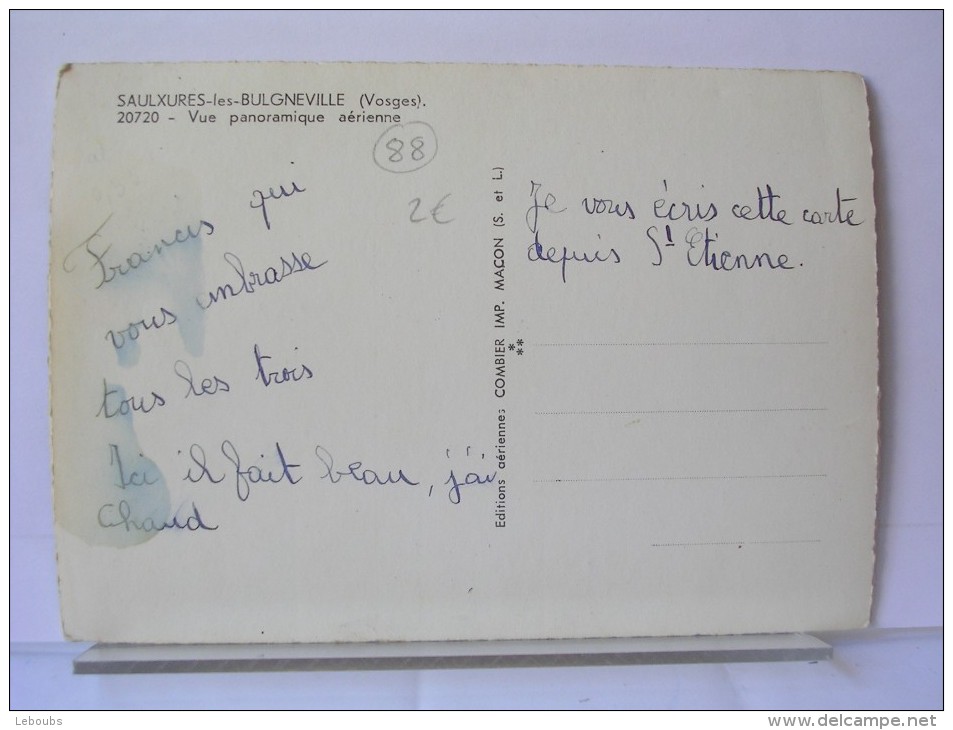 SAULXURES-les-BULGNEVILLE (Vosges).
20720 - Vue panoramique aérienne
88
2€
Francis qui
vous embrasse
tous les trois
Ici il fait beau, j'ai
chaud
Editions aériennes COMBIER IMP. MAÇON (S. et L.)
Je vous écris cette carte
depuis St Etienne.
Leboubs
delcampe.net